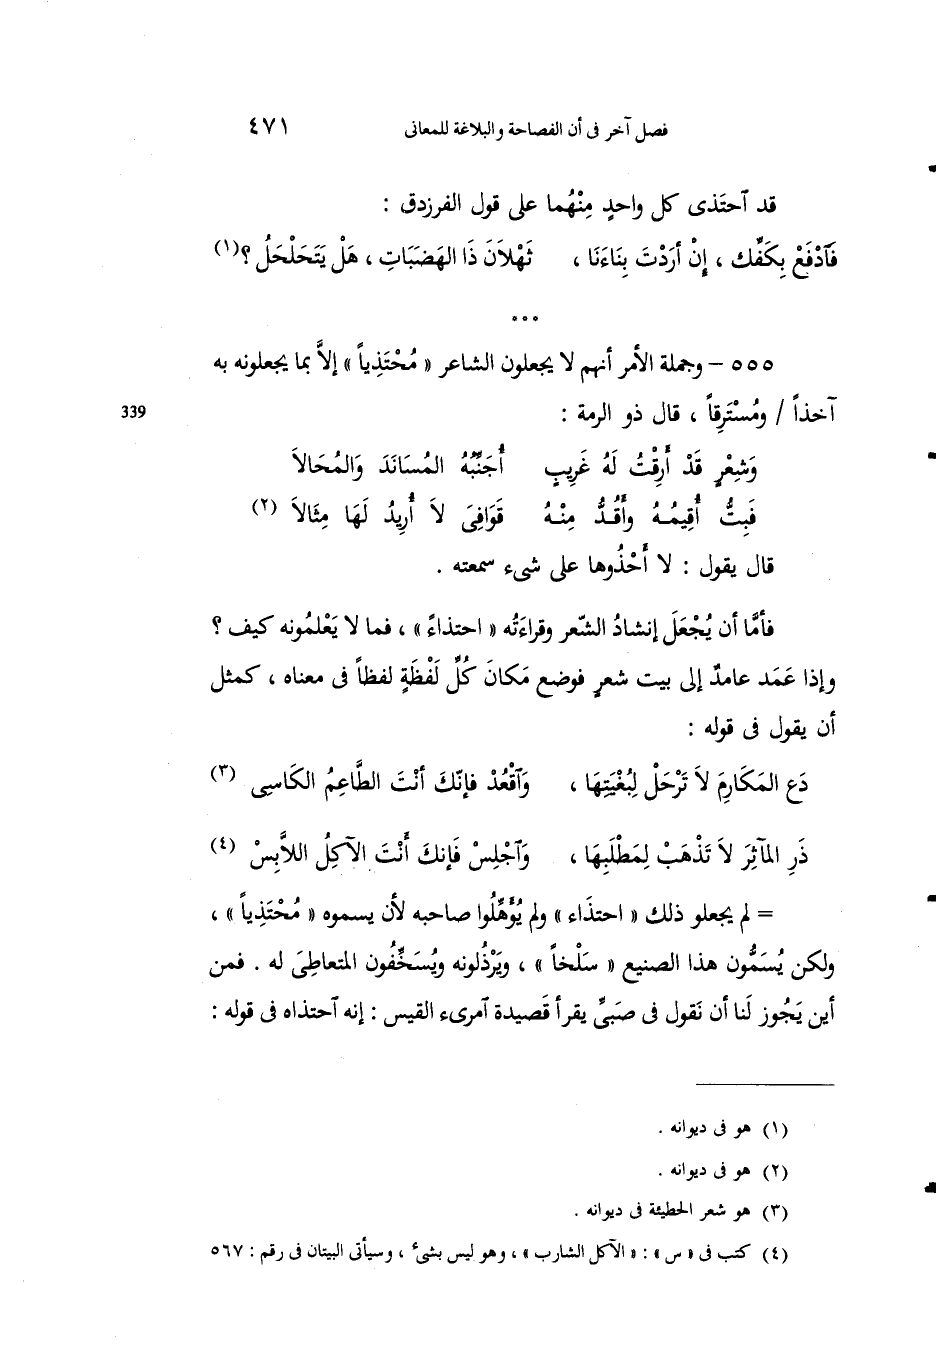 فصل آخر فى أن الفصاحة والبلاغة للمعانى ٤٧١
قد آحتَذى كل واحدٍ مِنْهُما على قول الفرزدق :
فَآدْفَعْ بِكَفِّك ، إِنْ أرَدْتَ بِنَاءَنَا ، ثَهْلاَنَ ذَا الهَضَبَاتِ ، هَلْ يَتَحَلْحَلُ ؟(١)
٠٠٠
٥٥٥ – وجملة الأمر أنهم لا يجعلون الشاعر « مُحْتَذِياً » إلاَّ بما يجعلونه به
آخذاً / ومُسْتَرِقاً ، قال ذو الرمة : 339
وَشِعْرٍ قَدْ أَرِقْتُ لَهُ غَرِيبٍ أُجَنِّبُهُ المُسَانَدَ وَالمُحَالاَ
فَبِتُّ أُقِيمُهُ وأَقُدُّ مِنْهُ قَوَافِىَ لاَ أُرِيدُ لَهَا مِثَالاَ (٢)
قال يقول : لا أَحْذُوها على شىء سمعته .
فأمَّا أن يُجْعَلَ إنشادُ الشّعر وقراءَتُه « احتذاءً » ، فما لا يَعْلمُونه كيف ؟
وإذا عَمَد عامدٌ إلى بيت شعرٍ فوضع مَكانَ كُلِّ لَفْظَةٍ لفظاً فى معناه ، كمثل
أن يقول فى قوله :
دَع المَكَارِمَ لاَ تَرْحَلْ لِبُغْيَتِهَا ، وَآقْعُدْ فإنّكَ أنْتَ الطَّاعِمُ الكَاسِى (٣)
ذَرِ المآثِرَ لاَ تَذْهَبْ لِمَطْلَبِهَا ، وَآجْلِسْ فَإنكَ أَنْتَ الآكِلُ اللاَّبِسْ (٤)
= لم يجعلو ذلك « احتذَاء » ولم يُؤَهِّلُوا صاحبه لأن يسموه « مُحْتَذِياً » ،
ولكن يُسَمُّون هذا الصنيع « سَلْخاً » ، ويَرْذُلونه ويُسَخِّفُون المتعاطِىَ له . فمن
أين يَجُوز لَنا أن نَقول فى صَبىٍّ يقرأ قَصيدة آمرىء القيس : إنه آحتذاه فى قوله :
(١) هو فى ديوانه .
(٢) هو فى ديوانه .
(٣) هو شعر الحطيئة فى ديوانه .
(٤) كتب فى « س » : « الآكل الشارب » ، وهو ليس بشىء ، وسيأتى البيتان فى رقم : ٥٦٧